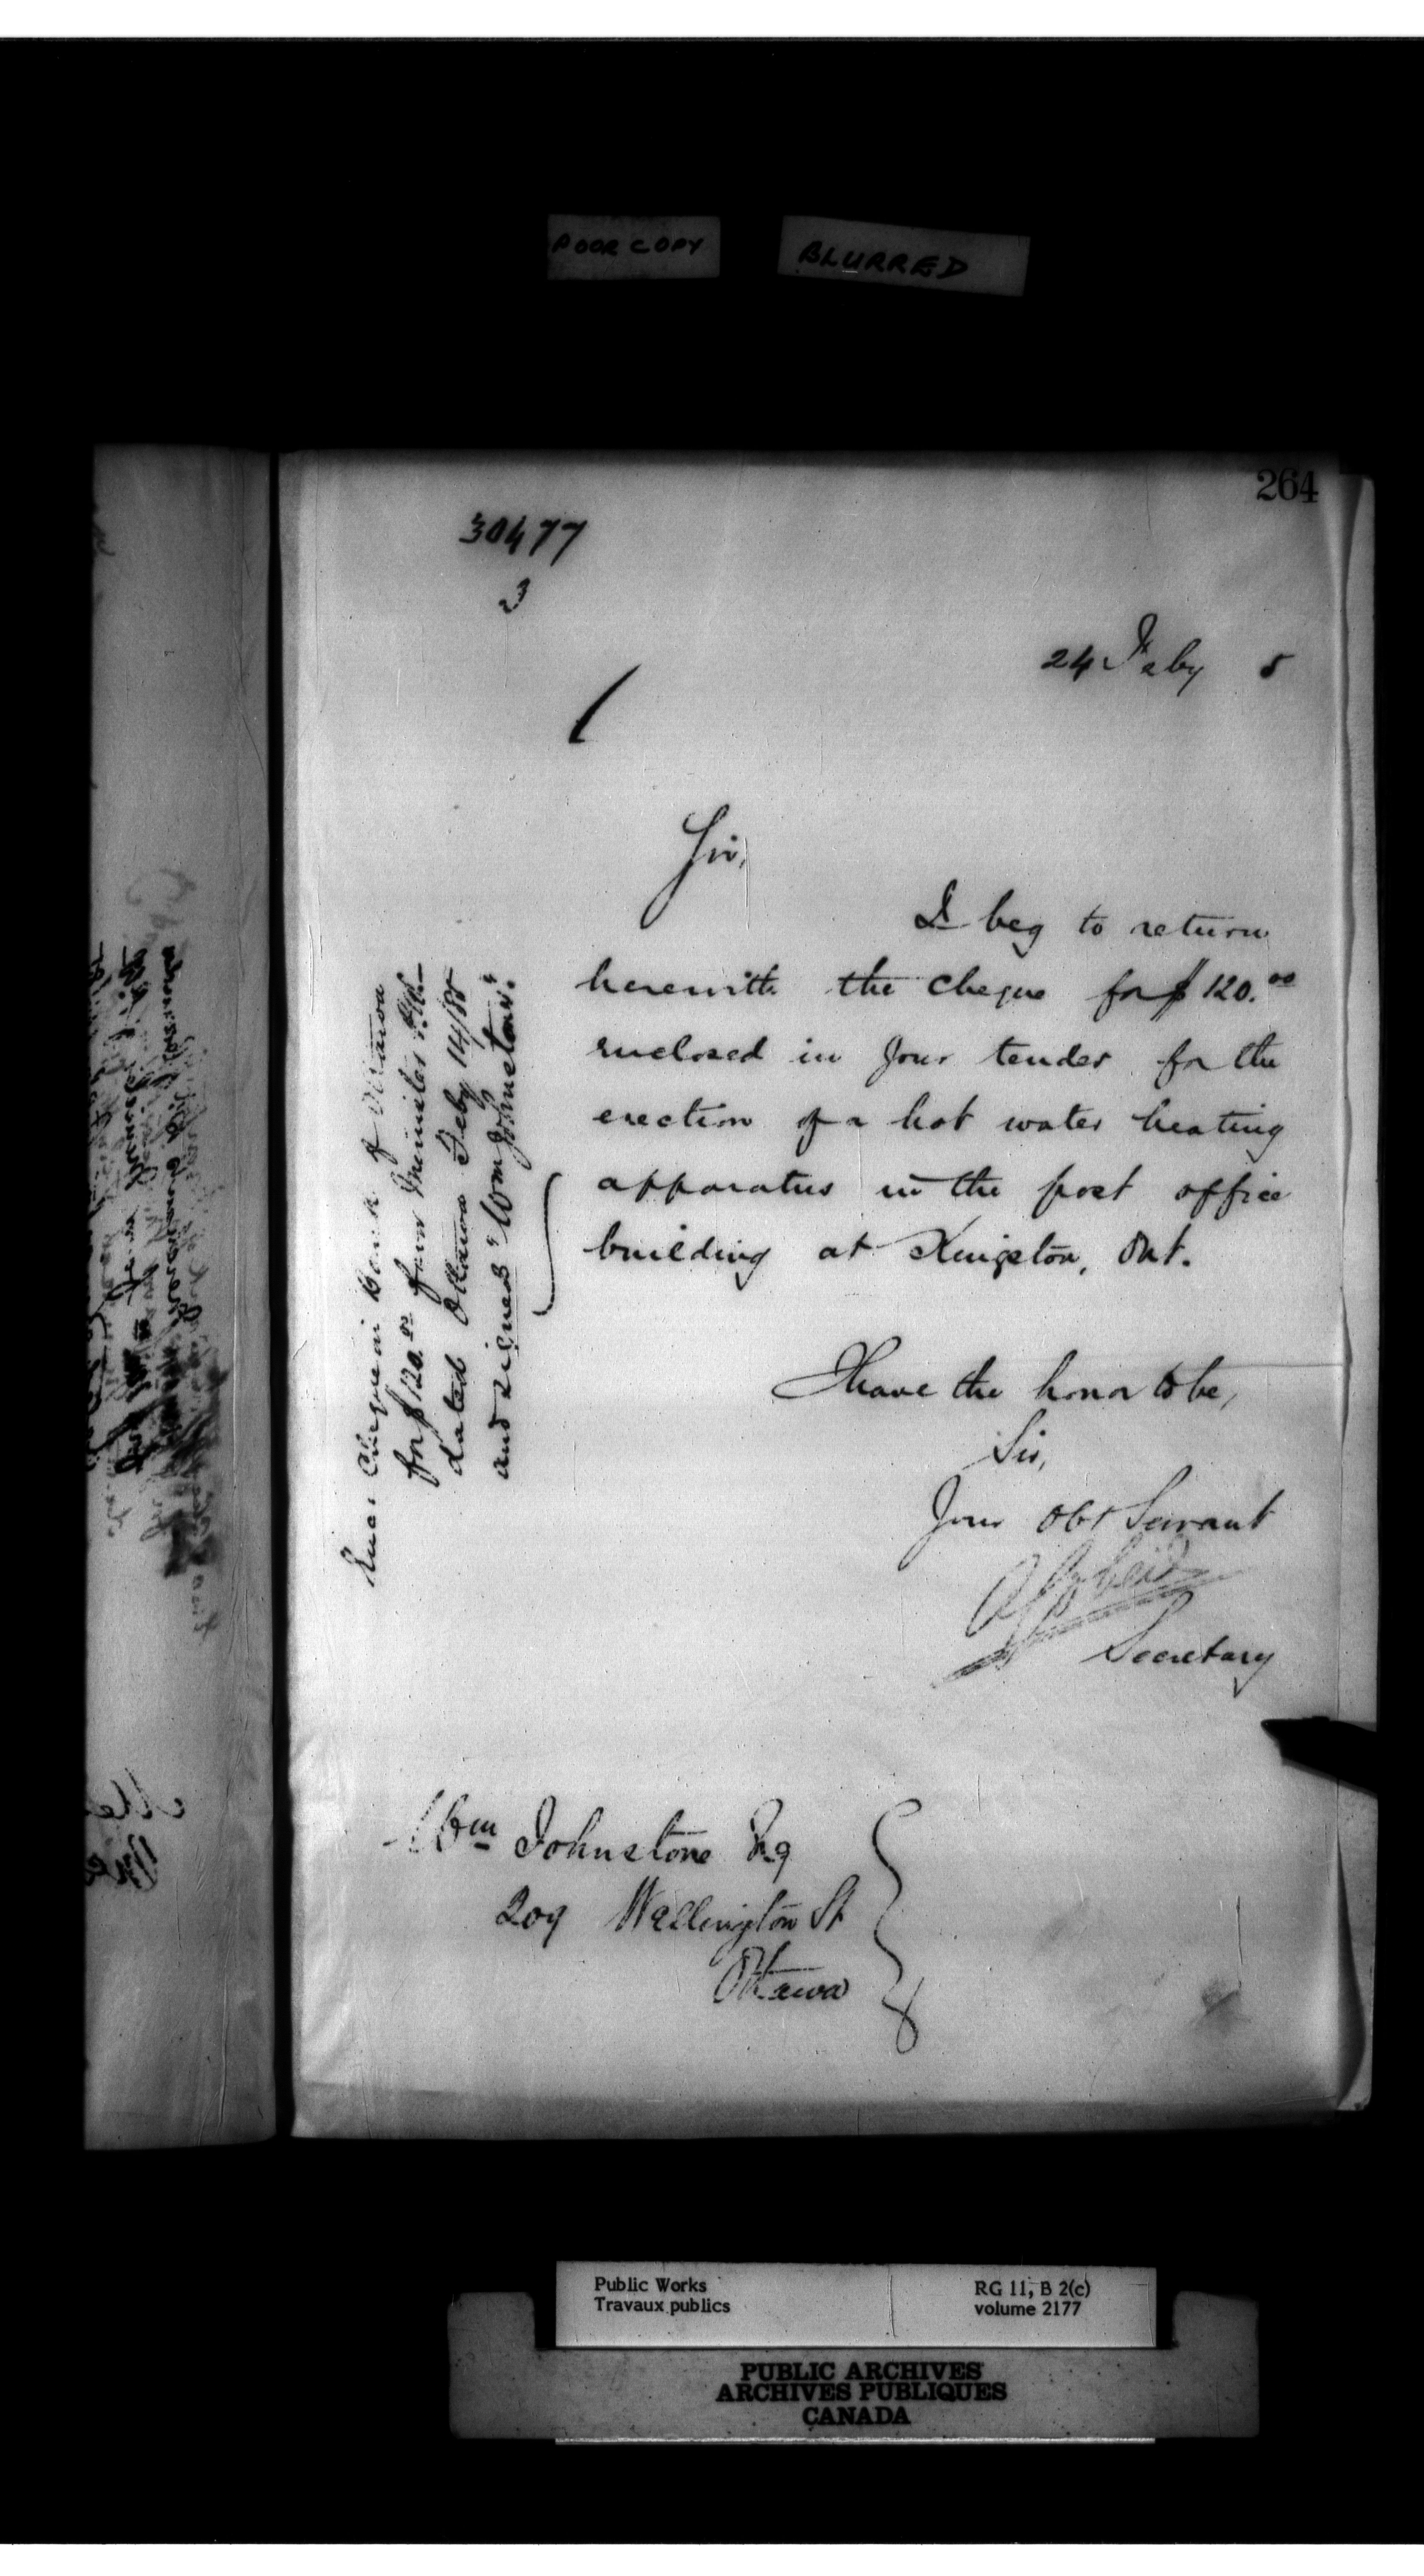 POOR COPY
BLURRED
264
30477
3
24 Feby 5
Sir,
I beg to return
herewith the cheque for $120.00
enclosed in your tender for the
erection of a hot water heating
apparatus in the post office
building at Kingston, Ont.
I have the honor to be,
Sir,
Your Obt Servant
Secretary
Cheque in Bank of Ottawa
for $120.00 favor Minister P.W.
dated Ottawa Feby 14/85
and signed "Wm Johnstone".
Wm Johnstone Esq
209 Wellington St
Ottawa
Public Works
Travaux publics
RG 11, B 2(c)
volume 2177
PUBLIC ARCHIVES
ARCHIVES PUBLIQUES
CANADA